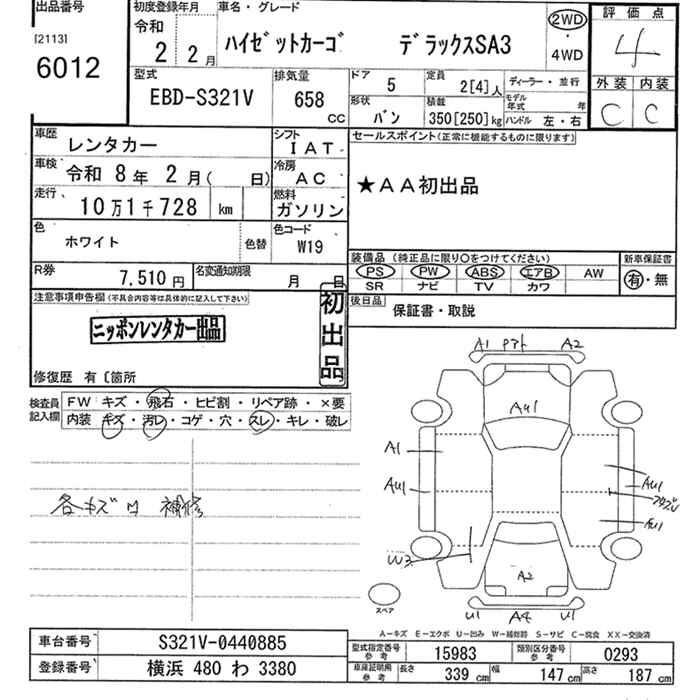 出品番号
[2113]
6012
初度登録年月
令和
2 2月
車名・グレード
ハイゼットカーゴ デラックスSA3
2WD
・
4WD
評価点
4
外装 内装
C C
型式
EBD-S321V
排気量
658
CC
ドア
5
定員
2[4]人
ディーラー・並行
形状
バン
積載
350[250]kg
モデル年式 年
ハンドル 左・右
車歴
レンタカー
シフト
IAT
セールスポイント(正常に機能するものに限ります)
★AA初出品
車検
令和 8年 2月( 日)
冷房
AC
走行
10万1千728 km
燃料
ガソリン
色
ホワイト
色替
色コード
W19
装備品 (純正品に限り○をつけてください)
PS PW ABS エアB AW
SR ナビ TV カワ
新車保証書
有・無
R券
7,510円
名変通知期限
月 日
後日品
保証書・取説
注意事項申告欄(不具合内容等は具体的に記入して下さい)
ニッポンレンタカー出品
初出品
修復歴 有〔箇所
検査員記入欄
FW キズ・飛石・ヒビ割・リペア跡・×要
内装 キズ・汚レ・コゲ・穴・スレ・キレ・破レ
各キズ凹 補修
A1 A2
AU1
A1
AU1
AU1
W3
A2
U1 A4 U1
スペア
A―キズ E―エクボ U―凹み W―補修跡 S―サビ C―腐食 XX―交換済
車台番号
S321V-0440885
登録番号
横浜 480 わ 3380
型式指定番号
参考
15983
類別区分番号
参考
0293
車庫証明用
参考
長さ
339 cm
幅
147 cm
高さ
187 cm